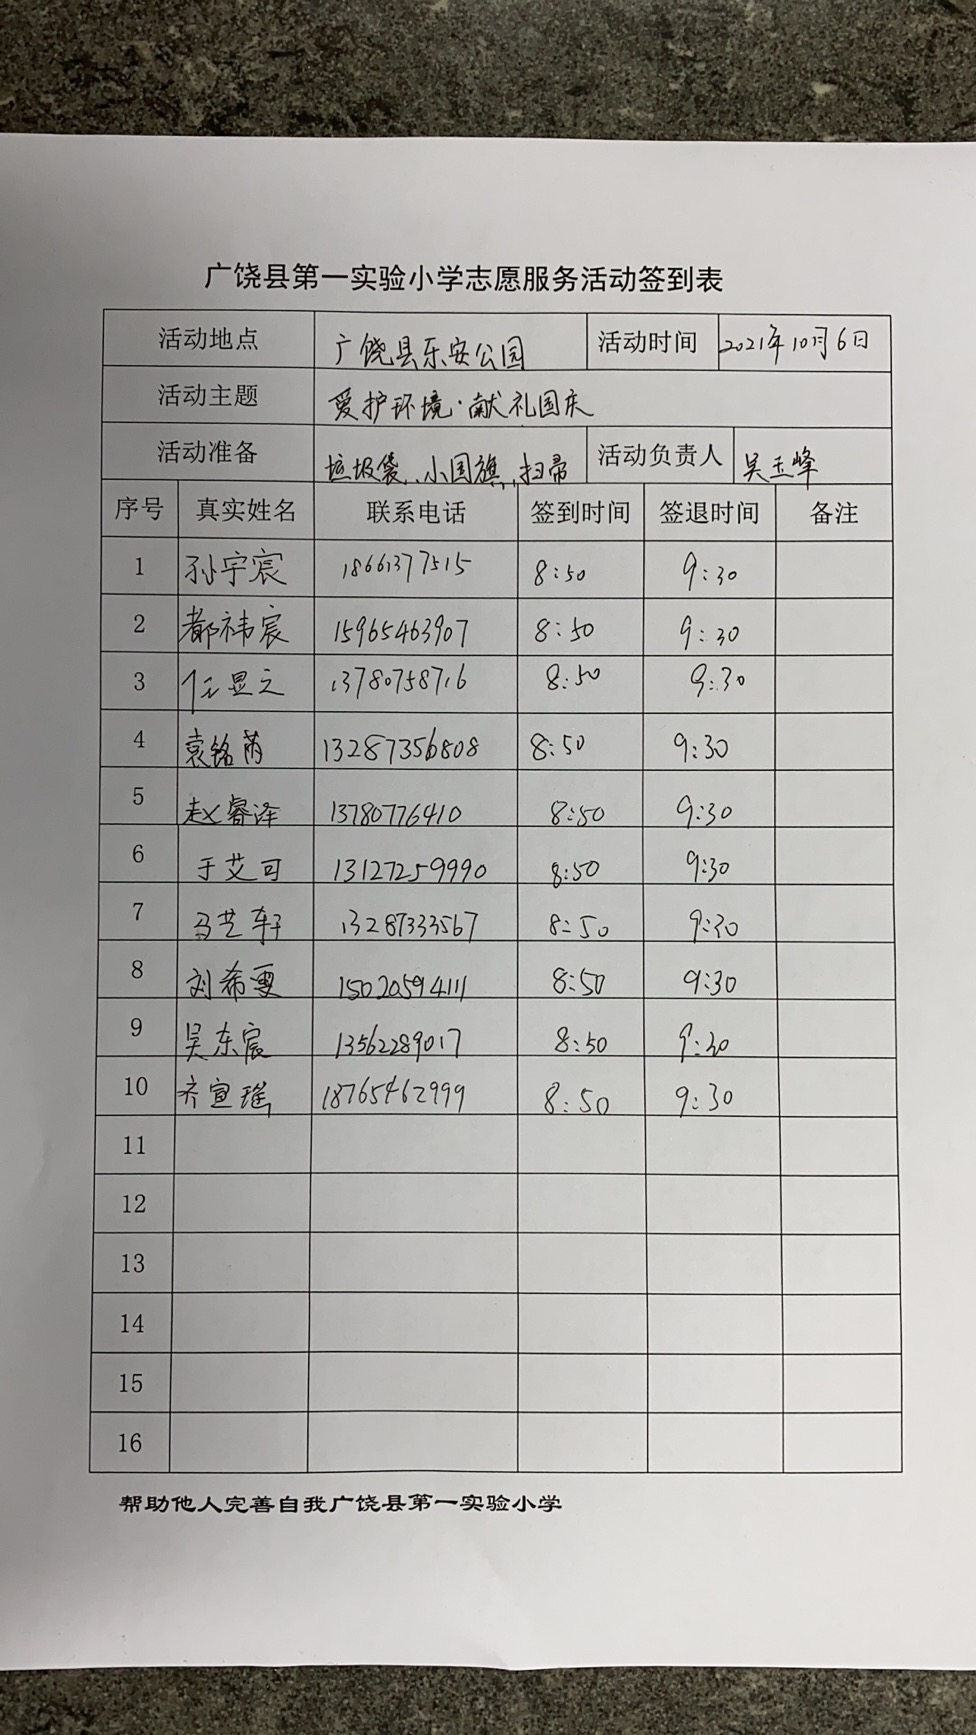 广饶县第一实验小学志愿服务活动签到表
活动地点 广饶县乐安公园 活动时间 2021年10月6日
活动主题 爱护环境·献礼国庆
活动准备 垃圾袋、小国旗、扫帚 活动负责人 吴玉峰
序号 真实姓名 联系电话 签到时间 签退时间 备注
1 孙宇宸 18661377515 8:50 9:30
2 都祎宸 15965463907 8:50 9:30
3 任显之 13780758716 8:50 9:30
4 袁铭芮 13287356808 8:50 9:30
5 赵睿泽 13780776410 8:50 9:30
6 于艾可 13127259990 8:50 9:30
7 马艺轩 13287333567 8:50 9:30
8 刘希雯 15020594111 8:50 9:30
9 吴东宸 13562289017 8:50 9:30
10 齐宣瑶 18765462999 8:50 9:30
11
12
13
14
15
16
帮助他人完善自我广饶县第一实验小学